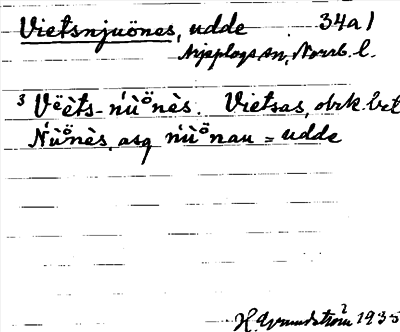 Vietsnjuönes, udde 34a1
Arjeplogs sn, Norrb. l.
³ Vëèts-ńùö̀nès. Vietsas, obek. bet.
Ńùö̀nès, asg ńùö̀nau = udde
H. Grundström 1935